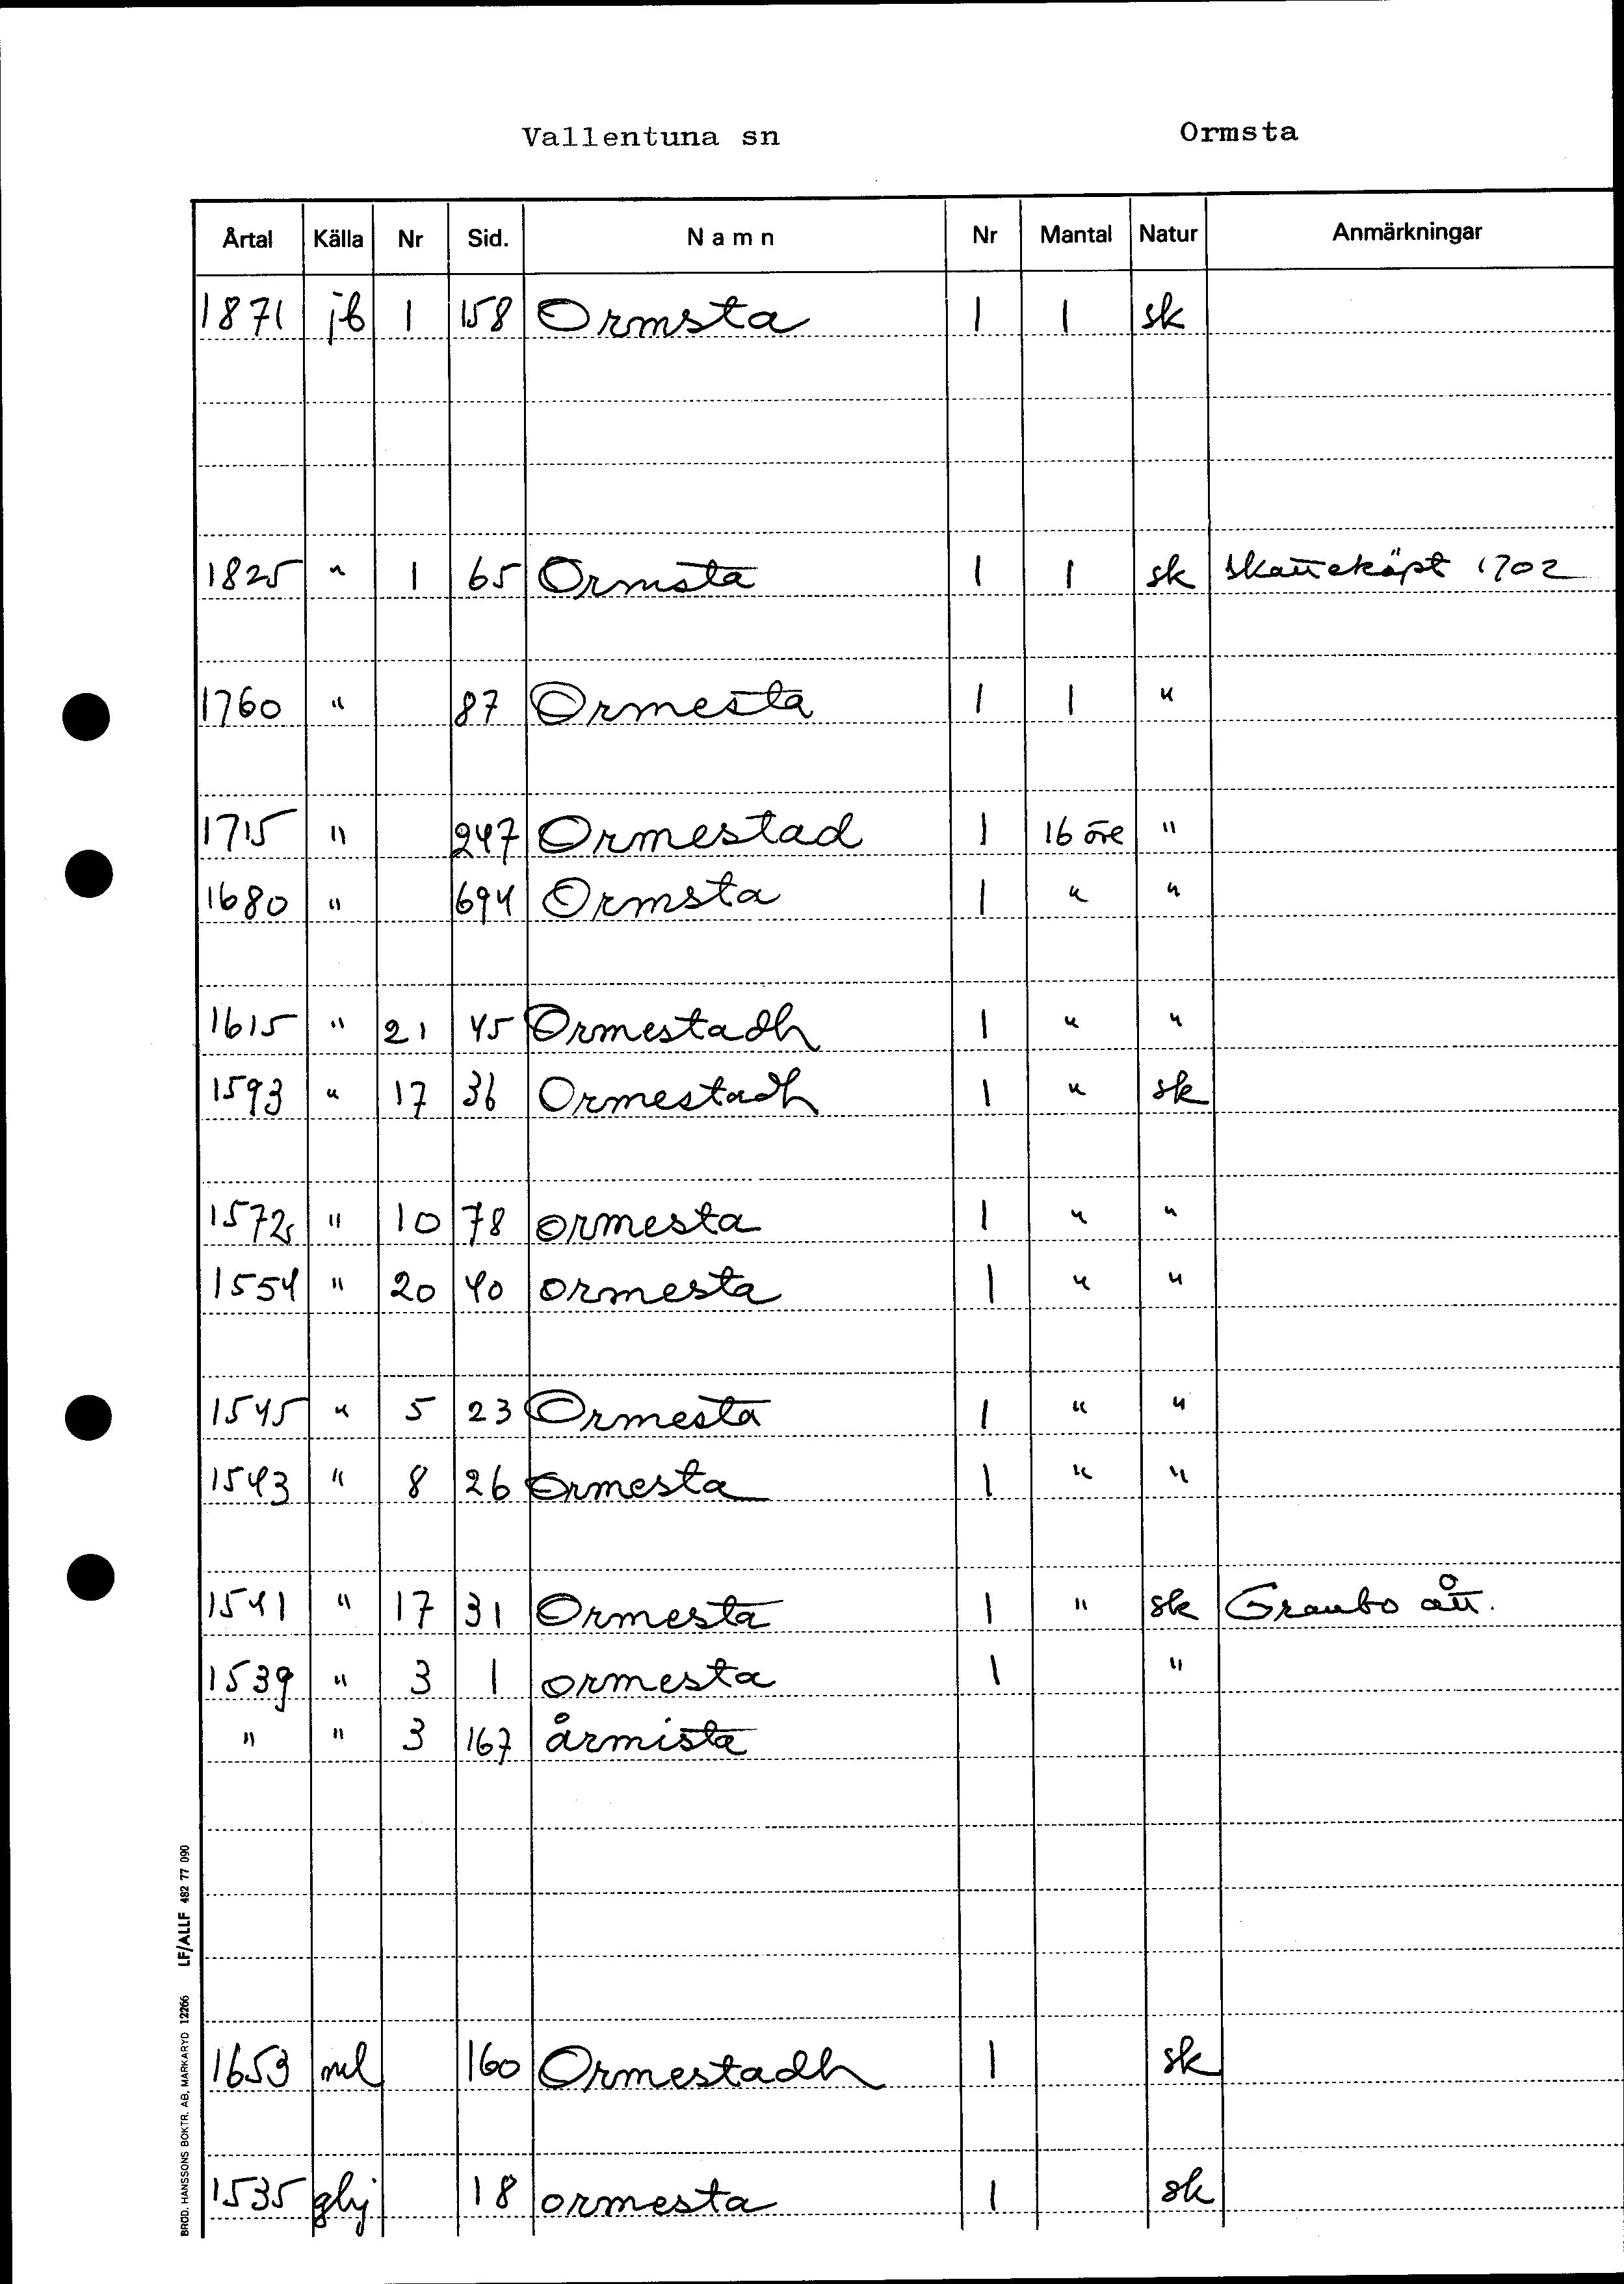 Vallentuna sn Ormsta
Årtal Källa Nr Sid. Namn Nr Mantal Natur Anmärkningar
1871 jb 1 158 Ormsta 1 1 sk
1825 " 1 65 Ormsta 1 1 sk skatteköpt 1702
1760 " 87 Ormesta 1 1 "
1715 " 247 Ormestad 1 16 öre "
1680 " 694 Ormsta 1 " "
1615 " 21 45 Ormestadh 1 " "
1593 " 17 36 Ormestadh 1 " sk
1572 " 10 78 ormesta 1 " "
1554 " 20 40 ormesta 1 " "
1545 " 5 23 Ormesta 1 " "
1543 " 8 26 Ormesta 1 " "
1541 " 17 31 Ormesta 1 " sk Granbo ått.
1539 " 3 1 ormesta 1 "
" " 3 167 årmista
1653 ml 160 Ormestadh 1 sk
1535 ghj 18 ormesta 1 sk
BRÖD. HANSSONS BOKTR. AB, MARKARYD 12266 LF/ALLF 482 77 090